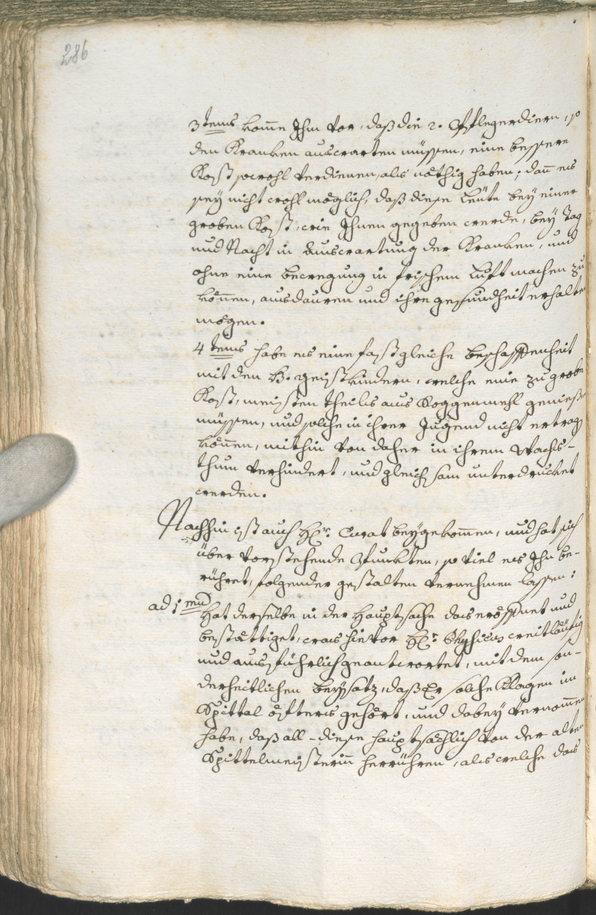 286
3tens komme Ihm vor, daß die 2. Pflegerdiern, so
den Kranken auswarten müssen, eine bessere
Kost sowohl verdienen, als nöthig haben, dann es
sey nicht wohl möglich, daß diese Leüte bey einer
groben Kost, wie Ihnen gegeben werde, bey Tag
und Nacht in Auswartung der Kranken, und
ohne eine bewegung in frischem Luft machen zu
können, ausdauren und ihre gesundheit erhalten
mögen.
4tens habe es eine fast gleiche beschaffenheit
mit den H: geist kindern, welche eine zu grobe
Kost, meisten theils aus Roggenmehl genießen
müssen, und solche in ihrer Jugend nicht ertragen
können, mithin von daher in ihrem Wachs-
thum verhindert, und gleichsam unterdrucket
werden.
Nachhin ist auch Hr. Curat beygekommen, und hat sich
über vorstehende Punkten, so viel es Ihn be-
rühret, folgender gestalten vernehmen lassen:
ad 1mum Hat derselbe in der Hauptsache das eröffnet und
bestättiget, was hievor Hr. Physicus weitläufig
und ausführlich geantwortet, mit dem son-
derheitlichen beysatz, daß Er solche Klagen im
Spittal öfters gehört, und dabey vernommen
habe, daß all-diese hauptsächlich von der alten
Spittelmeisterin herrühren, als welche das